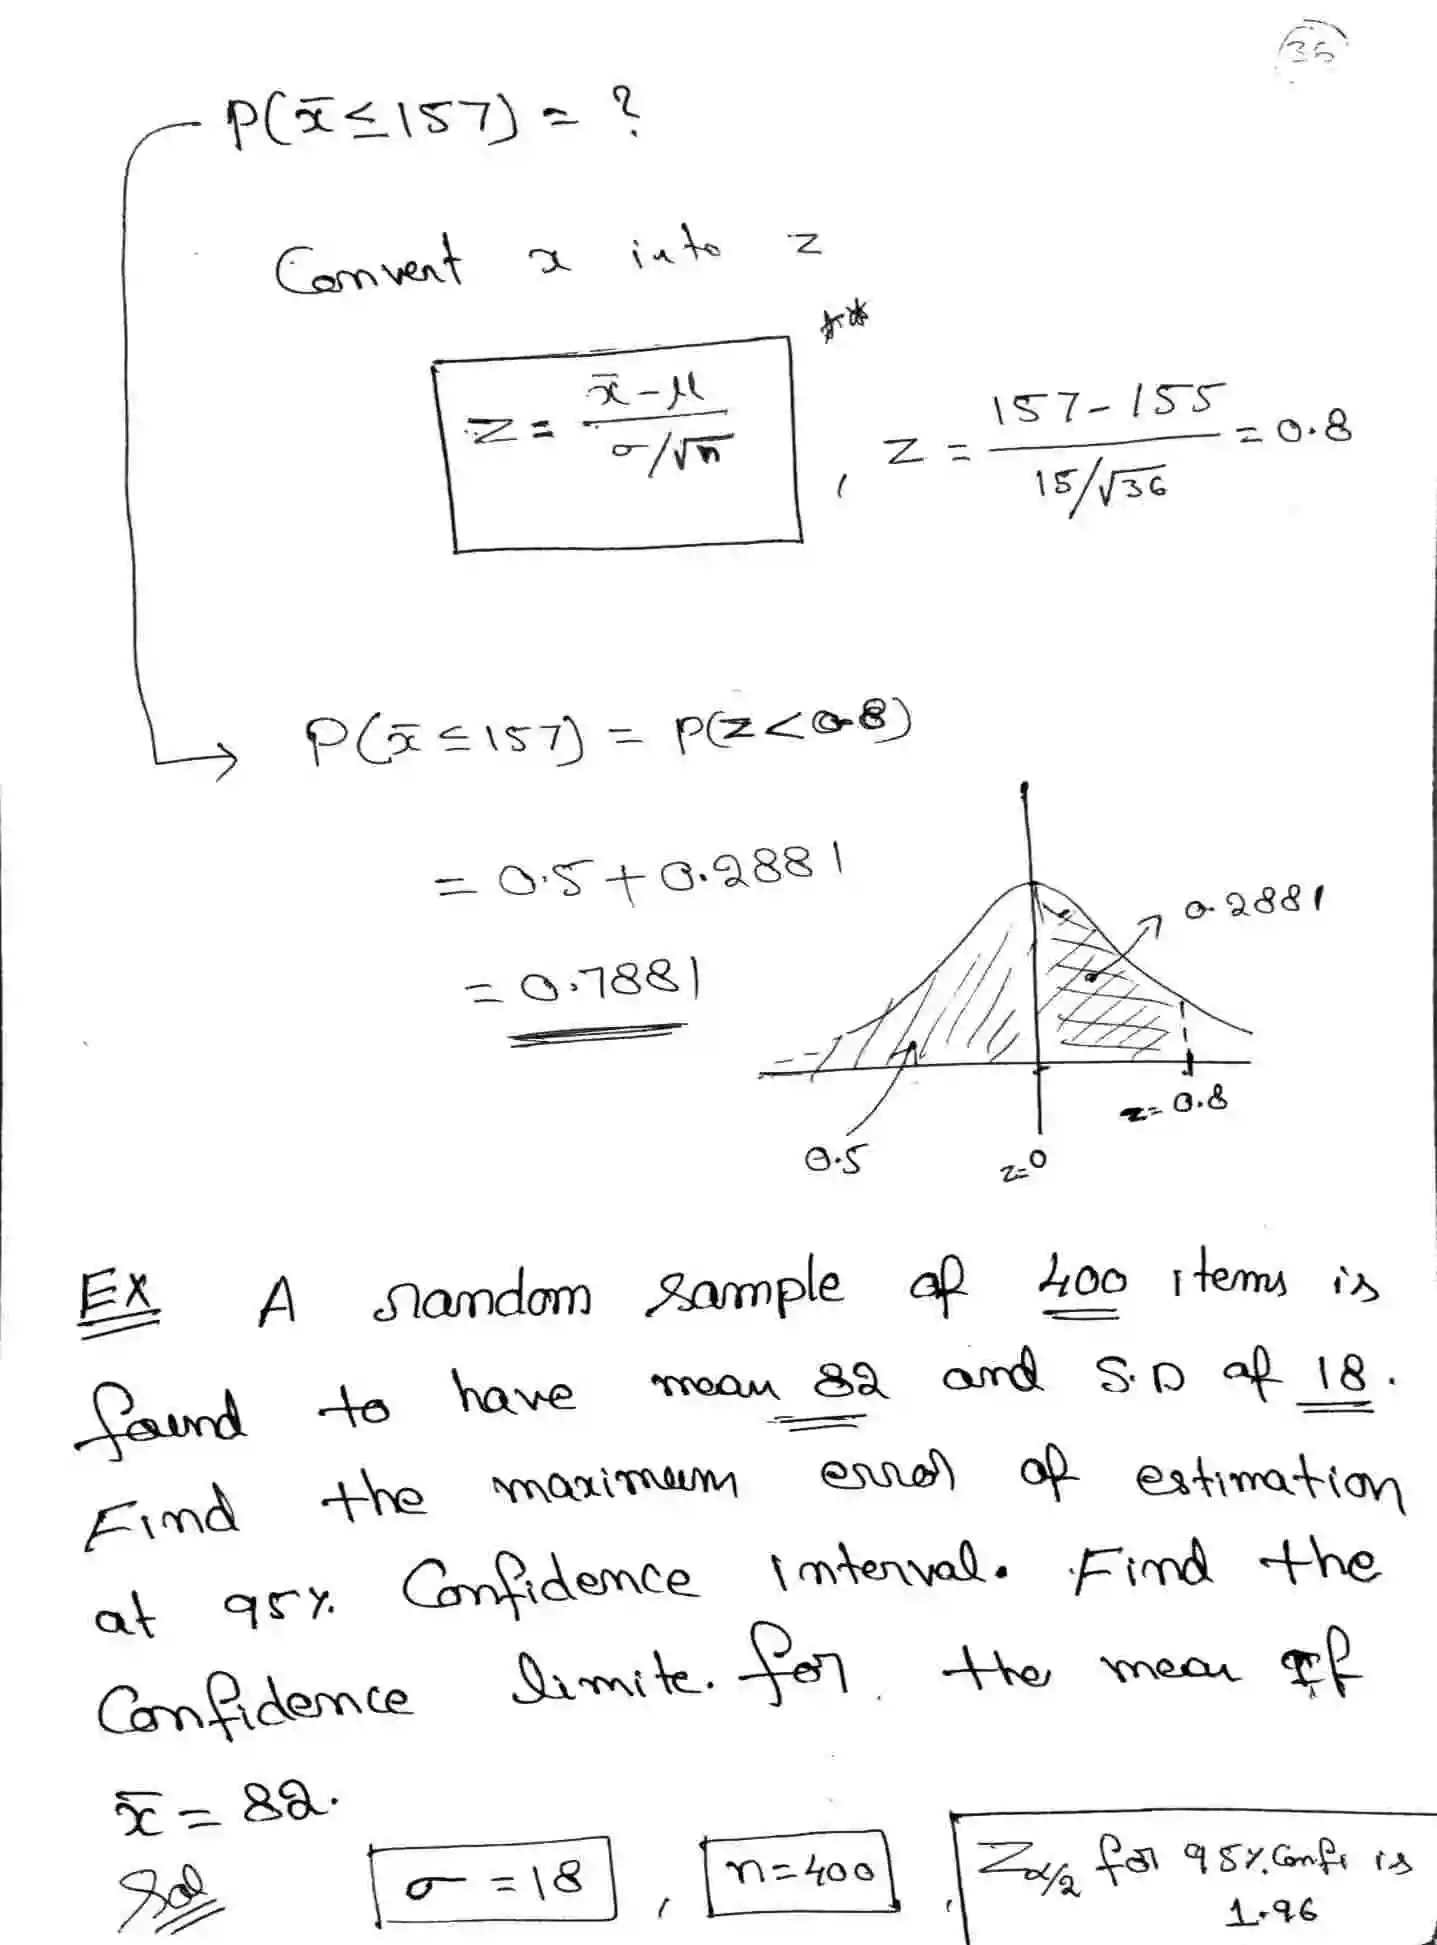 36
P(x̄ ≤ 157) = ?
Convert x into z
**
z = (x̄ - μ) / (σ/√n) , z = (157 - 155) / (15/√36) = 0.8
P(x̄ ≤ 157) = P(z < 0.8)
= 0.5 + 0.2881
= 0.7881
0.2881
z = 0.8
0.5
z=0
Ex A random sample of 400 items is
found to have mean 82 and S.D of 18.
Find the maximum error of estimation
at 95% Confidence interval. Find the
Confidence limits for the mean if
x̄ = 82.
Sol σ = 18 , n = 400 , Zα/2 for 95% Conf. is
1.96